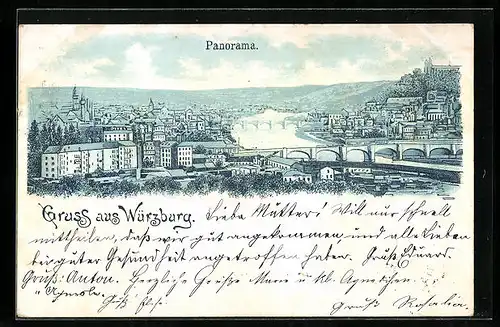 Panorama.
Gruss aus Würzburg. Liebe Mutter! Will nur schnell
mittheilen, daß wir gut angekommen und alle Lieben
bei guter Gesundheit angetroffen haben. Gruß Eduard.
Gruß: Anton. Herzliche Grüße Marie u. kl. Agneschen.
" Gruß Elsi. Gruß Rosalia.